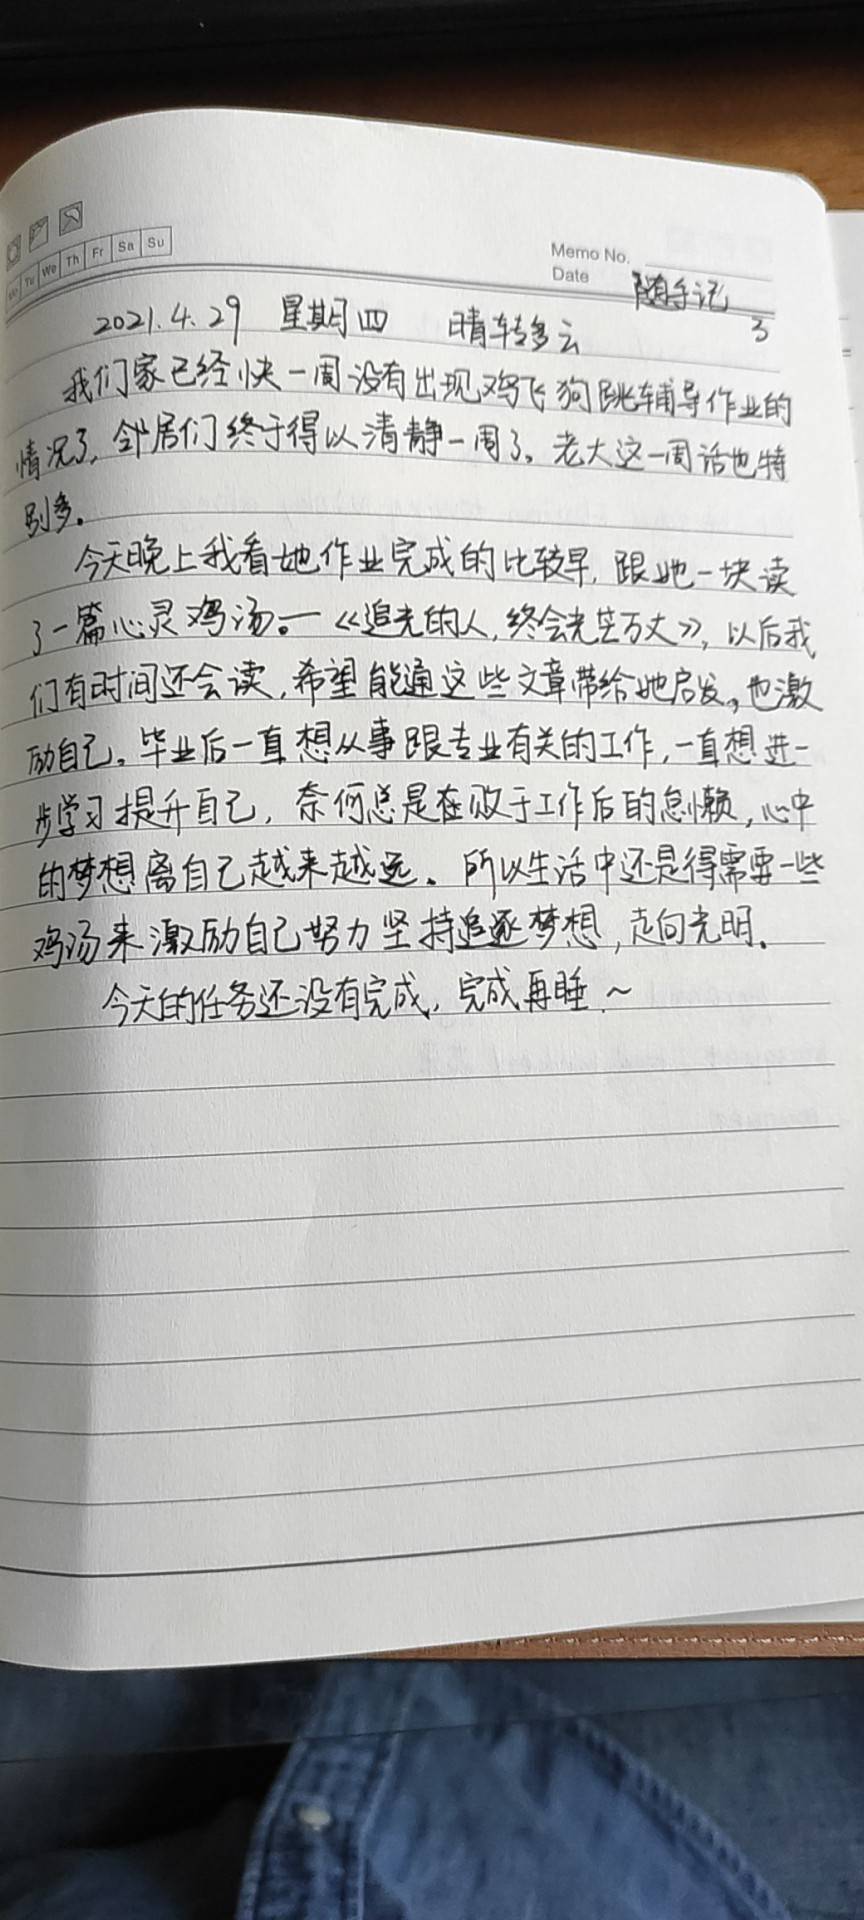 Mo Tu We Th Fr Sa Su
Memo No.
Date
随手记
3
2021.4.29 星期四 晴转多云
我们家已经快一周没有出现鸡飞狗跳辅导作业的
情况了,邻居们终于得以清静一周了。老大这一周话也特
别多。
今天晚上我看她作业完成的比较早,跟她一块读
了一篇心灵鸡汤。—《追光的人,终会光芒万丈》,以后我
们有时间还会读,希望能通这些文章带给她启发,也激
励自己。毕业后一直想从事跟专业有关的工作,一直想进一
步学习提升自己,奈何总是在败于工作后的怠懒,心中
的梦想离自己越来越远。所以生活中还是得需要一些
鸡汤来激励自己努力坚持追逐梦想,走向光明。
今天的任务还没有完成,完成再睡.~